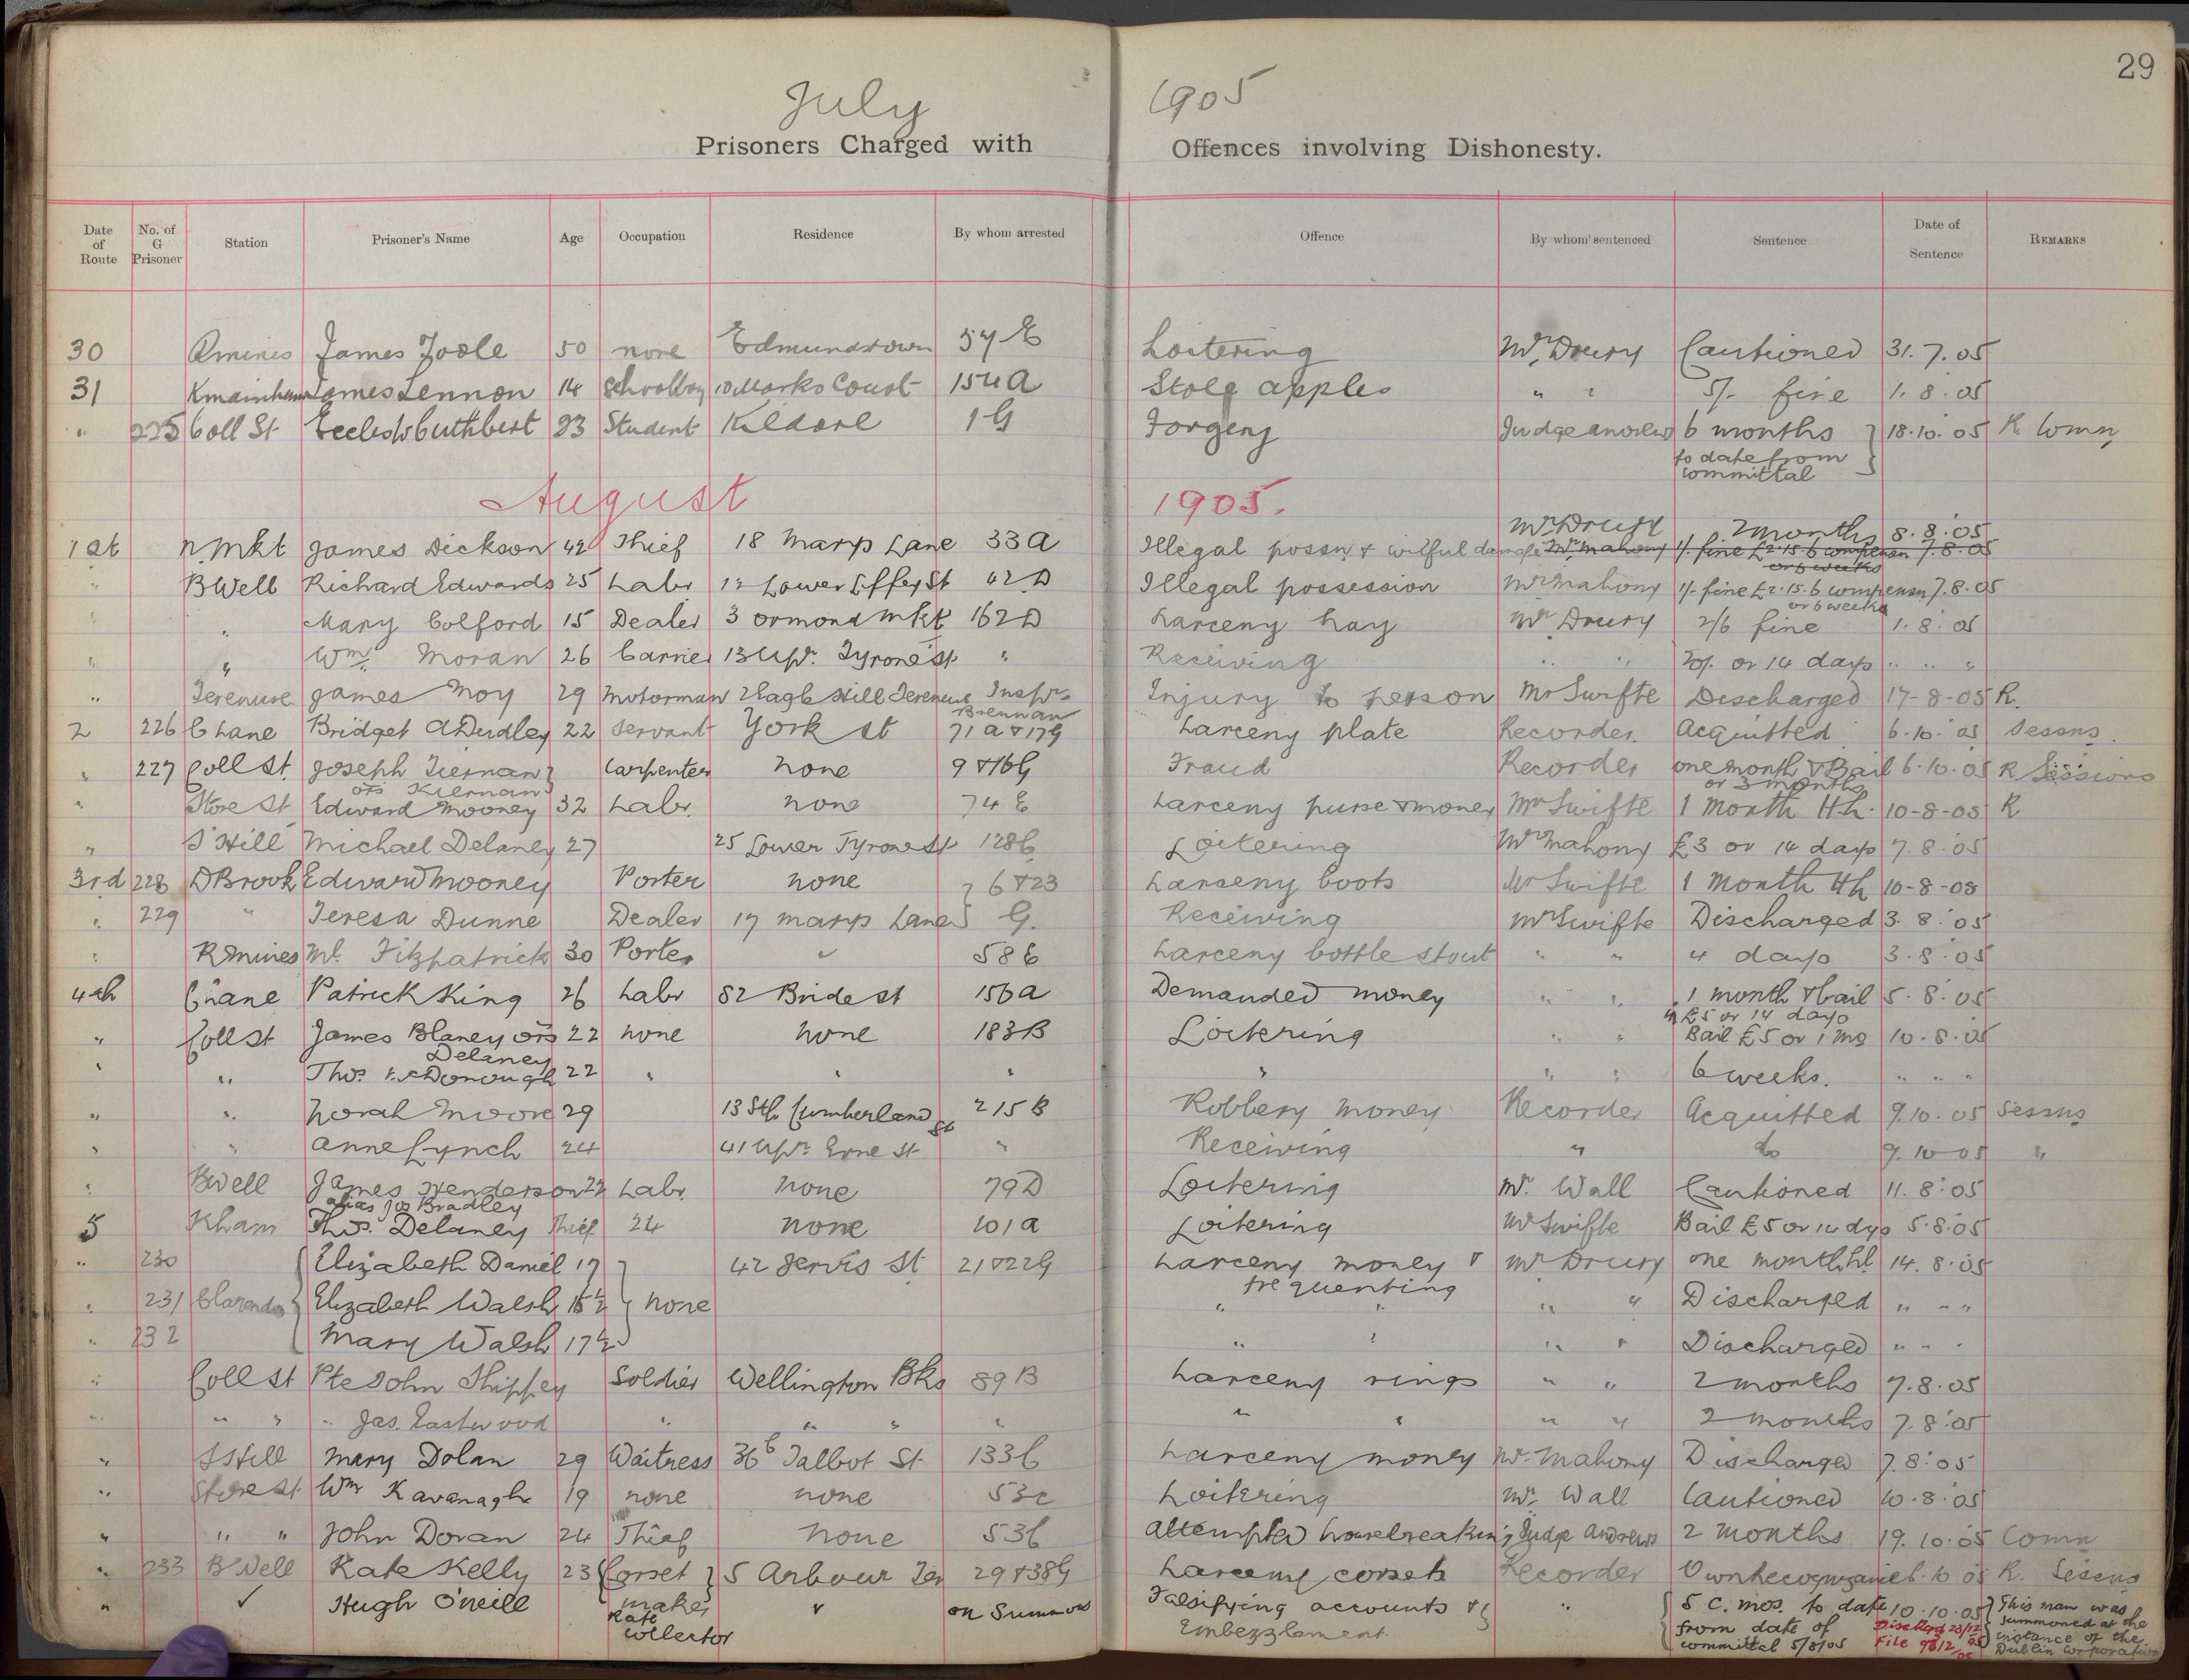 29
July 1905
Prisoners Charged with Offences involving Dishonesty.
Date of Route No. of G Prisoner Station Prisoner's Name Age Occupation Residence By whom arrested Offence By whom sentenced Sentence Date of Sentence REMARKS
30 Rmines James Toole 50 none Edmundstown 54 E Loitering Mr Drury Cautioned 31.7.05
31 Kmainham James Lennon 14 Schoolboy 10 Marks Court 154 A Stole apples " " 5/- fine 1.8.05
" 225 Coll St Cuthbert 23 Student Kildare 1 G Forgery Judge Andrews 6 months 18.10.05 R Comn
to date from
committal
August 1905.
Mr Drury 2 months 8.8.05
1st N. Mkt James Dickson 42 Thief 18 Marys Lane 33 A Illegal possn & wilful damage Mr Mahony 1/- fine £2.15.6 compensn 7.8.05
or 6 weeks
" BWell Richard Edwards 25 Labr 12 Lower Liffey St 42 D Illegal possession Mr Mahony 1/- fine £2.15.6 compensn 7.8.05
or 6 weeks
" " Mary Colford 15 Dealer 3 Ormond Mkt 162 D Larceny hay Mr Drury 2/6 fine 1.8.05
" " Wm Moran 26 Carrier 13 Upr. Tyrone St " Receiving " " 20/- or 14 days " " "
" Terenure James Moy 29 Motorman 2 Eagle Hill Terenure Inspr Injury to person Mr Swifte Discharged 17-8-05 R.
Brennan
2 226 C Lane Bridget A Dudley 22 Servant York St 71 A & 17 G Larceny plate Recorder. Acquitted 6.10.05 Sessns.
" 227 Coll St Joseph Tiernan Carpenter none 9 & 16 G Fraud Recorder one month & Bail 6.10.05 R Sessions
ors Kiernan or 3 months
" Store St Edward Mooney 32 Labr. none 74 E Larceny purse & money Mr Swifte 1 month H.L. 10-8-05 R
" S Hill Michael Delaney 27 25 Lower Tyrone St 128 C Loitering Mr Mahony £3 or 14 days 7.8.05
3rd 228 D Brook Edward Mooney Porter none 6 & 23 Larceny boots Mr Swifte 1 month HL 10-8-05
" 229 " Teresa Dunne Dealer 17 Marys Lane G. Receiving Mr Swifte Discharged 3.8.05
" RMines Ml. Fitzpatrick 30 Porter " 58 E Larceny bottle stout " " 4 days 3.8.05
4th C Lane Patrick King 26 Labr 82 Bride St 156 A Demanded money " " 1 month & bail 5.8.05
in £5 or 14 days
" Coll St James Blaney ors 22 none none 183 B Loitering " " Bail £5 or 1 mo 10.8.05
Delaney
" " Thos. McDonough 22 " " " " " " 6 weeks. " " "
" " Norah Moore 29 13 Sth Cumberland St 215 B Robbery money Recorder Acquitted 9.10.05 Sessns
" " Anne Lynch 24 41 Upr Erne St " Receiving " do 9.10.05 "
" Bwell James Henderson 22 Labr. none 79 D Loitering Mr. Wall Cautioned 11.8.05
alias Jos Bradley
5 Kham Thos. Delaney Thief 24 none 101 A Loitering Mr Swifte Bail £5 or 14 dys 5.8.05
" 230 Elizabeth Daniel 17 42 Jervis St 21 & 22 G Larceny money & Mr Drury one month hl. 14.8.05
frequenting
" 231 Clarendon Elizabeth Walsh 15½ none " " " " Discharged " " "
" 232 Mary Walsh 17½ " " " " Discharged " " "
" Coll St Pte John Shippey Soldier Wellington Bks 89 B Larceny rings " " 2 months 7.8.05
" " " " Jas. Eastwood " " " " " " " " 2 months 7.8.05
" S Hill Mary Dolan 29 Waitress 36 Talbot St. 133 C Larceny money Mr. Mahony Discharged 7.8.05
" Store St Wm Kavanagh 19 none none 53 C Loitering Mr. Wall Cautioned 10.8.05
" " " John Doran 24 Thief none 53 C Attempted housebreaking Judge Andrews 2 months 19.10.05 Comn
" 233 B Well Kate Kelly 23 Corset 5 Arbour Ter 29 & 38 G Larceny corsets Recorder Own Recognizance 6.10.05 R. Sessns
maker
" ✓ Hugh O'Neill Rate " on Summons Falsifying accounts & " 5 c. mos. to date 10.10.05 This man was
collector Embezzlement. from date of Dischgd 23/12 summoned at the
committal 5/8/05 File instance of the
Dublin Corporation